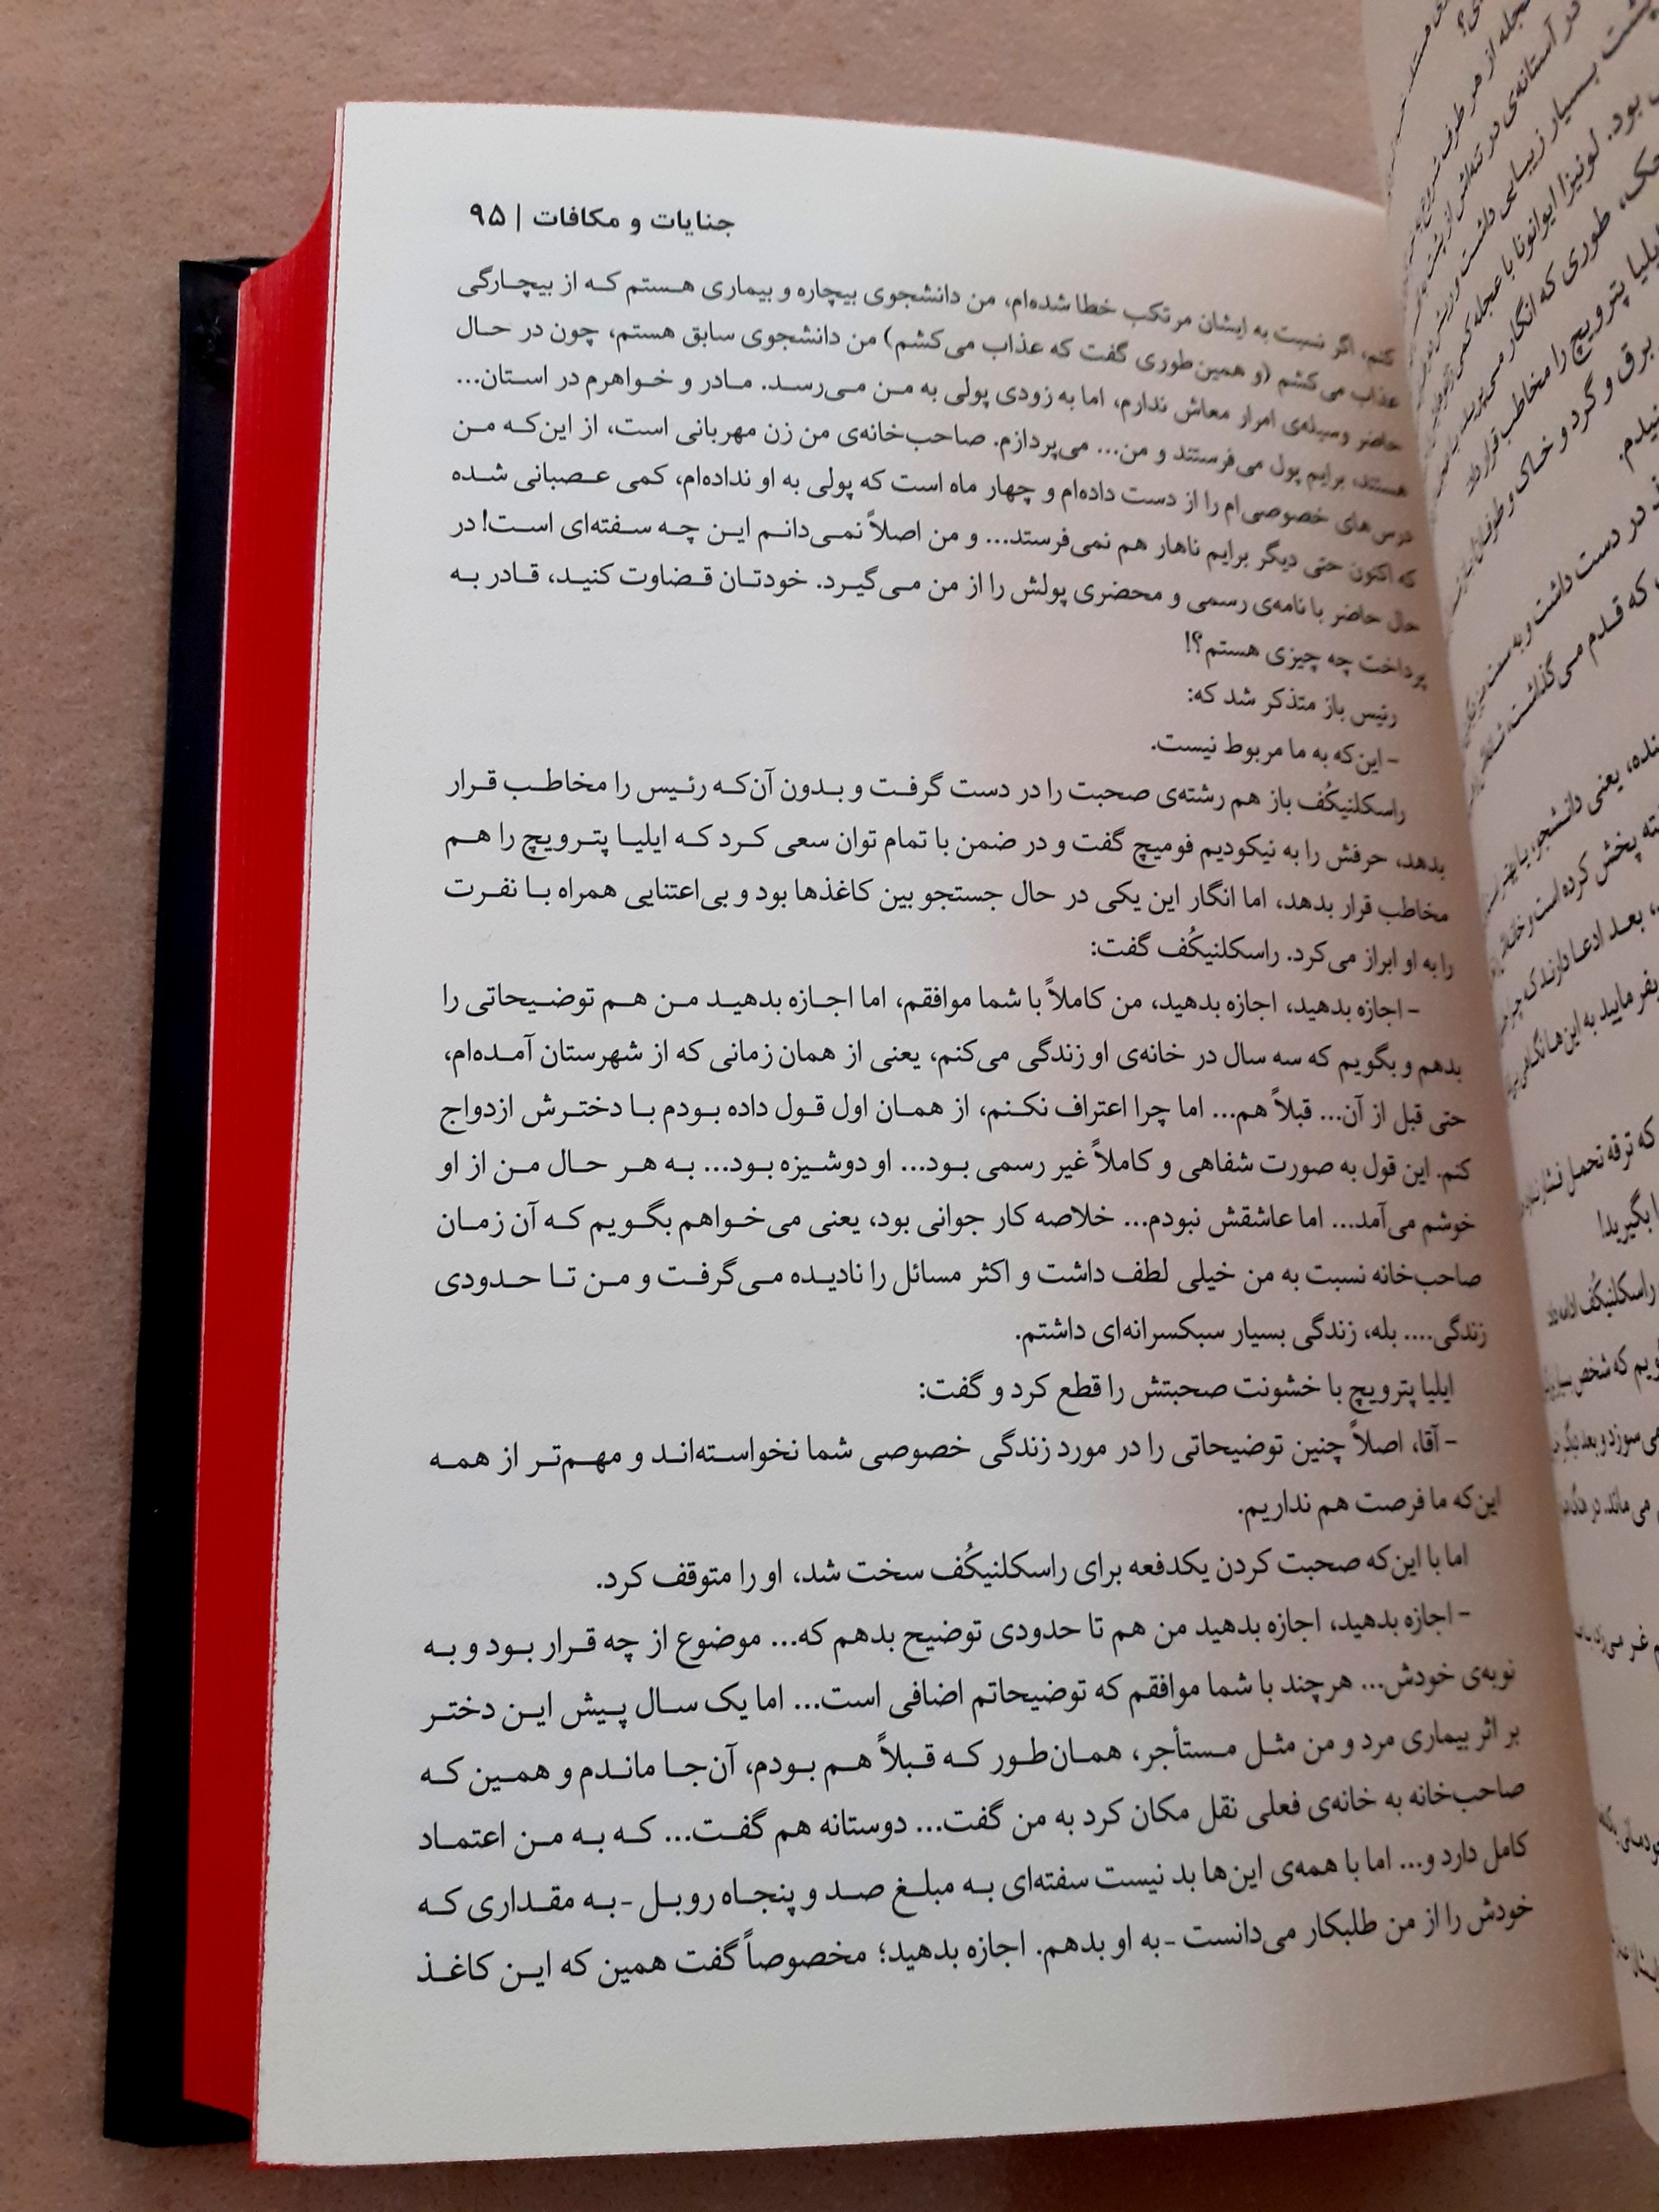 جنایات و مکافات | ۹۵
کنم، اگر نسبت به ایشان مرتکب خطا شده‌ام، من دانشجوی بیچاره و بیماری هستم که از بیچارگی
عذاب می‌کشم (و همین‌طوری گفت که عذاب می‌کشم) من دانشجوی سابق هستم، چون در حال
حاضر وسیله‌ی امرار معاش ندارم، اما به زودی پولی به من می‌رسد. مادر و خواهرم در استان...
هستند، برایم پول می‌فرستند و من... می‌پردازم. صاحب‌خانه‌ی من زن مهربانی است، از این‌که من
درس‌های خصوصی‌ام را از دست داده‌ام و چهار ماه است که پولی به او نداده‌ام، کمی عصبانی شده
که اکنون حتی دیگر برایم ناهار هم نمی‌فرستد... و من اصلاً نمی‌دانم این چه سفته‌ای است! در
حال حاضر با نامه‌ی رسمی و محضری پولش را از من می‌گیرد. خودتان قضاوت کنید، قادر به
پرداخت چه چیزی هستم؟!
رئیس باز متذکر شد که:
- این‌که به ما مربوط نیست.
راسکلنیکُف باز هم رشته‌ی صحبت را در دست گرفت و بدون آن‌که رئیس را مخاطب قرار
بدهد، حرفش را به نیکودیم فومیچ گفت و در ضمن با تمام توان سعی کرد که ایلیا پترویچ را هم
مخاطب قرار بدهد، اما انگار این یکی در حال جستجو بین کاغذها بود و بی‌اعتنایی همراه با نفرت
را به او ابراز می‌کرد. راسکلنیکُف گفت:
- اجازه بدهید، اجازه بدهید، من کاملاً با شما موافقم، اما اجازه بدهید من هم توضیحاتی را
بدهم و بگویم که سه سال در خانه‌ی او زندگی می‌کنم، یعنی از همان زمانی که از شهرستان آمده‌ام،
حتی قبل از آن... قبلاً هم... اما چرا اعتراف نکنم، از همان اول قول داده بودم با دخترش ازدواج
کنم. این قول به صورت شفاهی و کاملاً غیر رسمی بود... او دوشیزه بود... به هر حال من از او
خوشم می‌آمد... اما عاشقش نبودم... خلاصه کار جوانی بود، یعنی می‌خواهم بگویم که آن زمان
صاحب‌خانه نسبت به من خیلی لطف داشت و اکثر مسائل را نادیده می‌گرفت و من تا حدودی
زندگی.... بله، زندگی بسیار سبکسرانه‌ای داشتم.
ایلیا پترویچ با خشونت صحبتش را قطع کرد و گفت:
- آقا، اصلاً چنین توضیحاتی را در مورد زندگی خصوصی شما نخواسته‌اند و مهم‌تر از همه
این‌که ما فرصت هم نداریم.
اما با این‌که صحبت کردن یکدفعه برای راسکلنیکُف سخت شد، او را متوقف کرد.
- اجازه بدهید، اجازه بدهید من هم تا حدودی توضیح بدهم که... موضوع از چه قرار بود و به
نوبه‌ی خودش... هرچند با شما موافقم که توضیحاتم اضافی است... اما یک سال پیش این دختر
بر اثر بیماری مرد و من مثل مستأجر، همان‌طور که قبلاً هم بودم، آن‌جا ماندم و همین که
صاحب‌خانه به خانه‌ی فعلی نقل مکان کرد به من گفت... دوستانه هم گفت... که به من اعتماد
کامل دارد و... اما با همه‌ی این‌ها بد نیست سفته‌ای به مبلغ صد و پنجاه روبل - به مقداری که
خودش را از من طلبکار می‌دانست - به او بدهم. اجازه بدهید؛ مخصوصاً گفت همین که این کاغذ